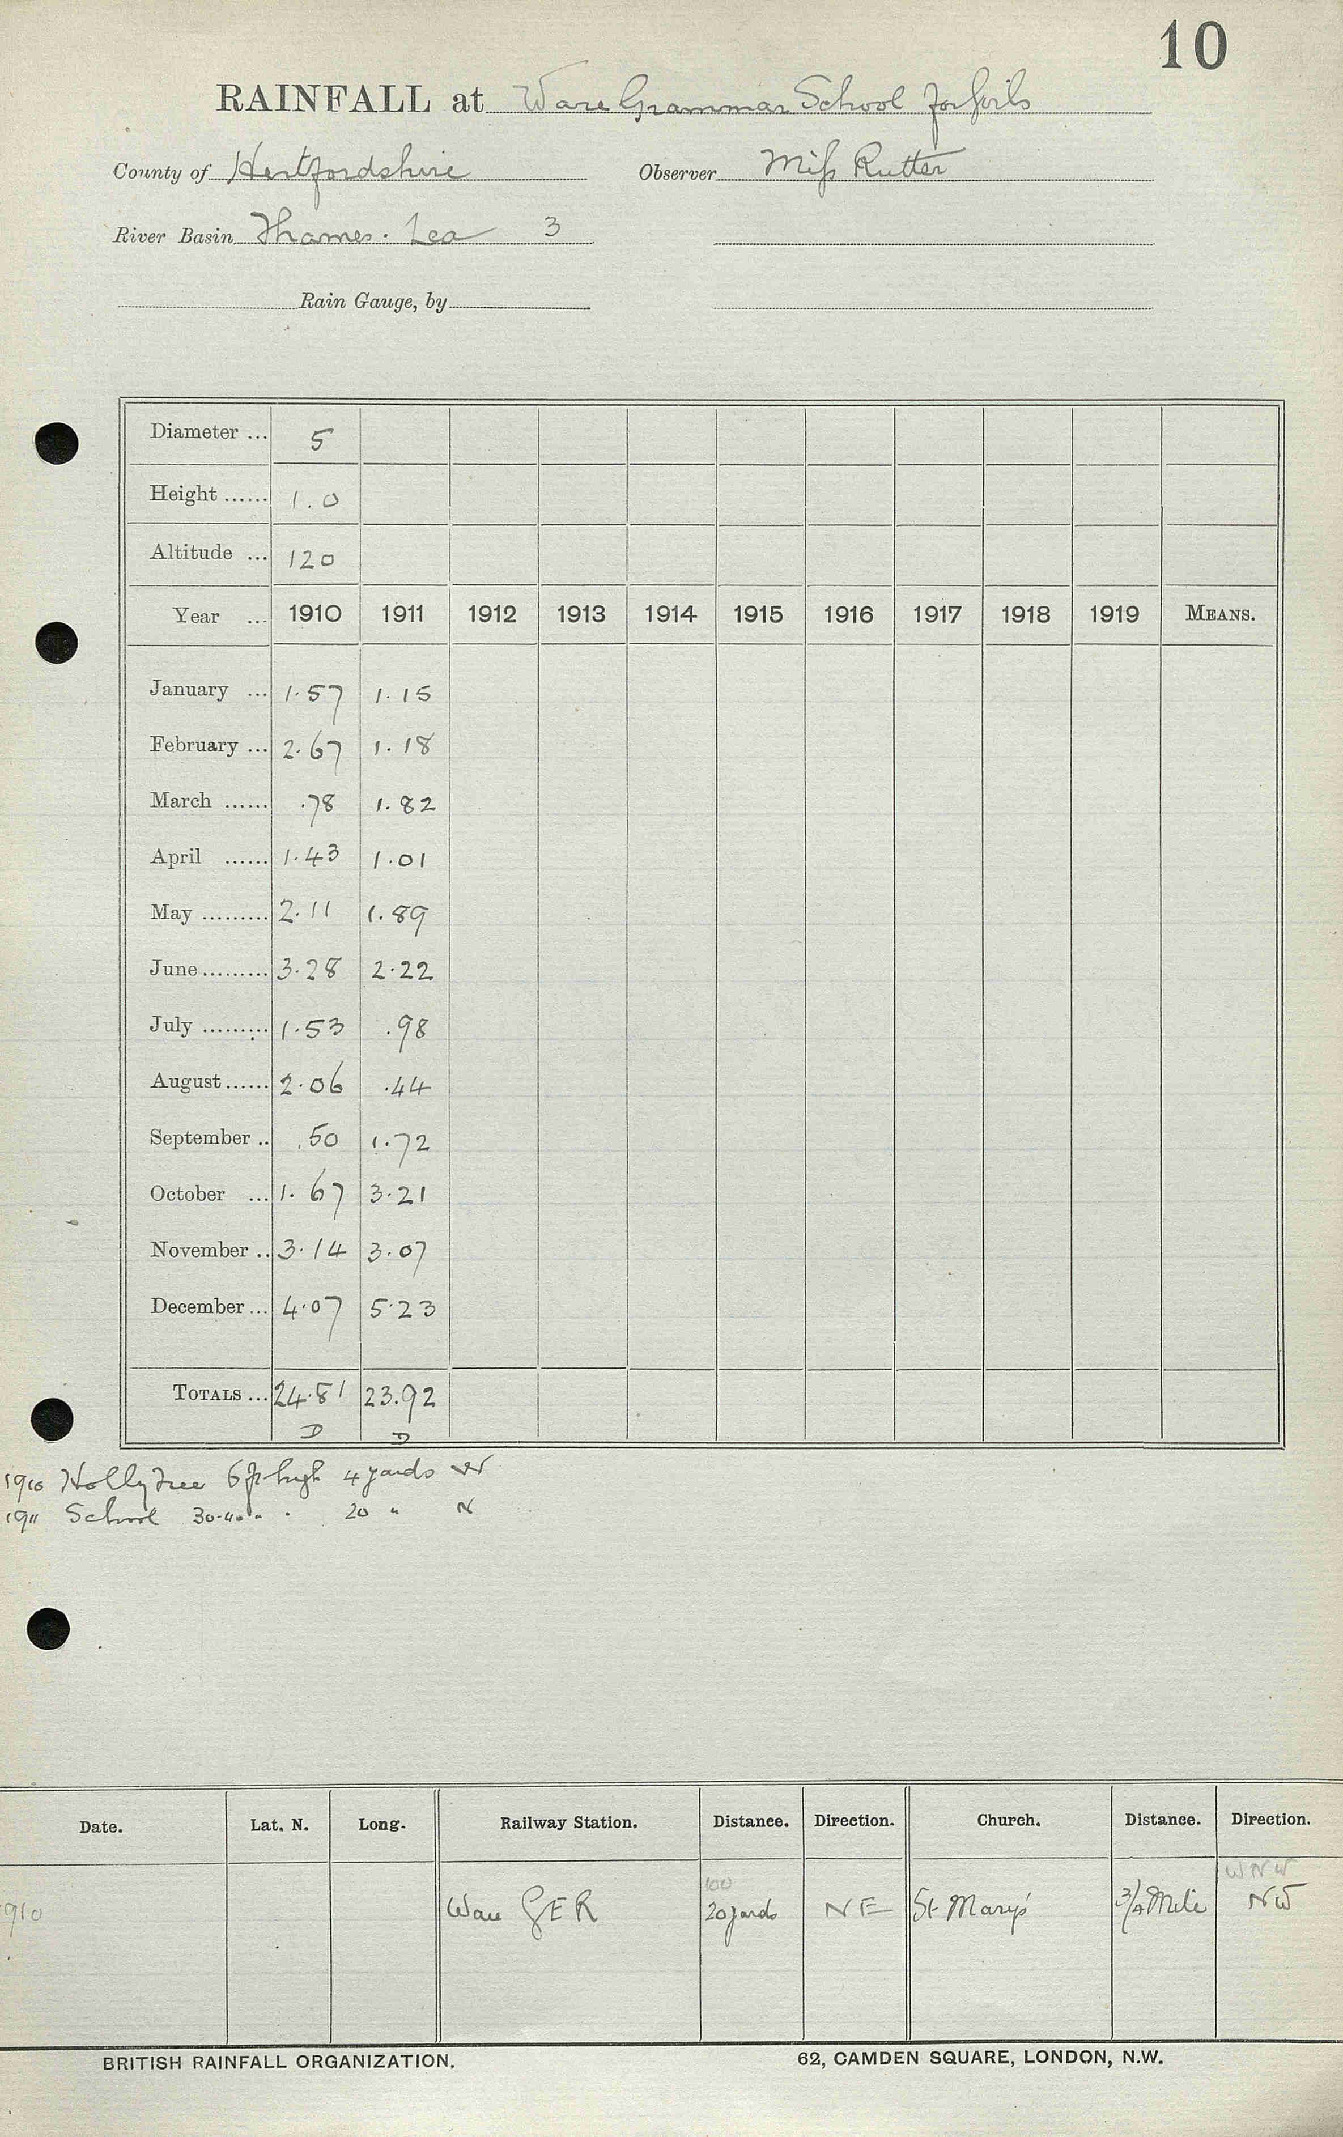 10
RAINFALL at Ware Grammar School for Girls
County of Hertfordshire Observer Miss Rutter
River Basin Thames. Lea 3
Rain Gauge, by
Diameter ... 5
Height ...... 1.0
Altitude ... 120
Year ... 1910 1911 1912 1913 1914 1915 1916 1917 1918 1919 MEANS.
January ... 1.57 1.15
February ... 2.67 1.18
March ...... .78 1.82
April ...... 1.43 1.01
May ......... 2.11 1.89
June ......... 3.28 2.22
July ......... 1.53 .98
August ...... 2.06 .44
September .. .50 1.72
October ... 1.67 3.21
November .. 3.14 3.07
December ... 4.07 5.23
TOTALS ... 24.81 23.92
D D
1910 Holly tree 6ft high 4 yards W
1911 School 30-40 " " 20 " N
Date. Lat. N. Long. Railway Station. Distance. Direction. Church. Distance. Direction.
100 WNW
1910 Ware GER 20 yards NE St Mary's 3/4 Mile NW
BRITISH RAINFALL ORGANIZATION. 62, CAMDEN SQUARE, LONDON, N.W.